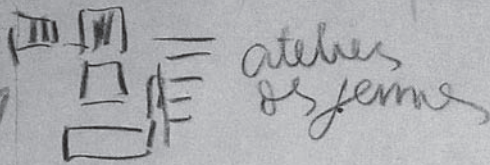 atelier
des femmes